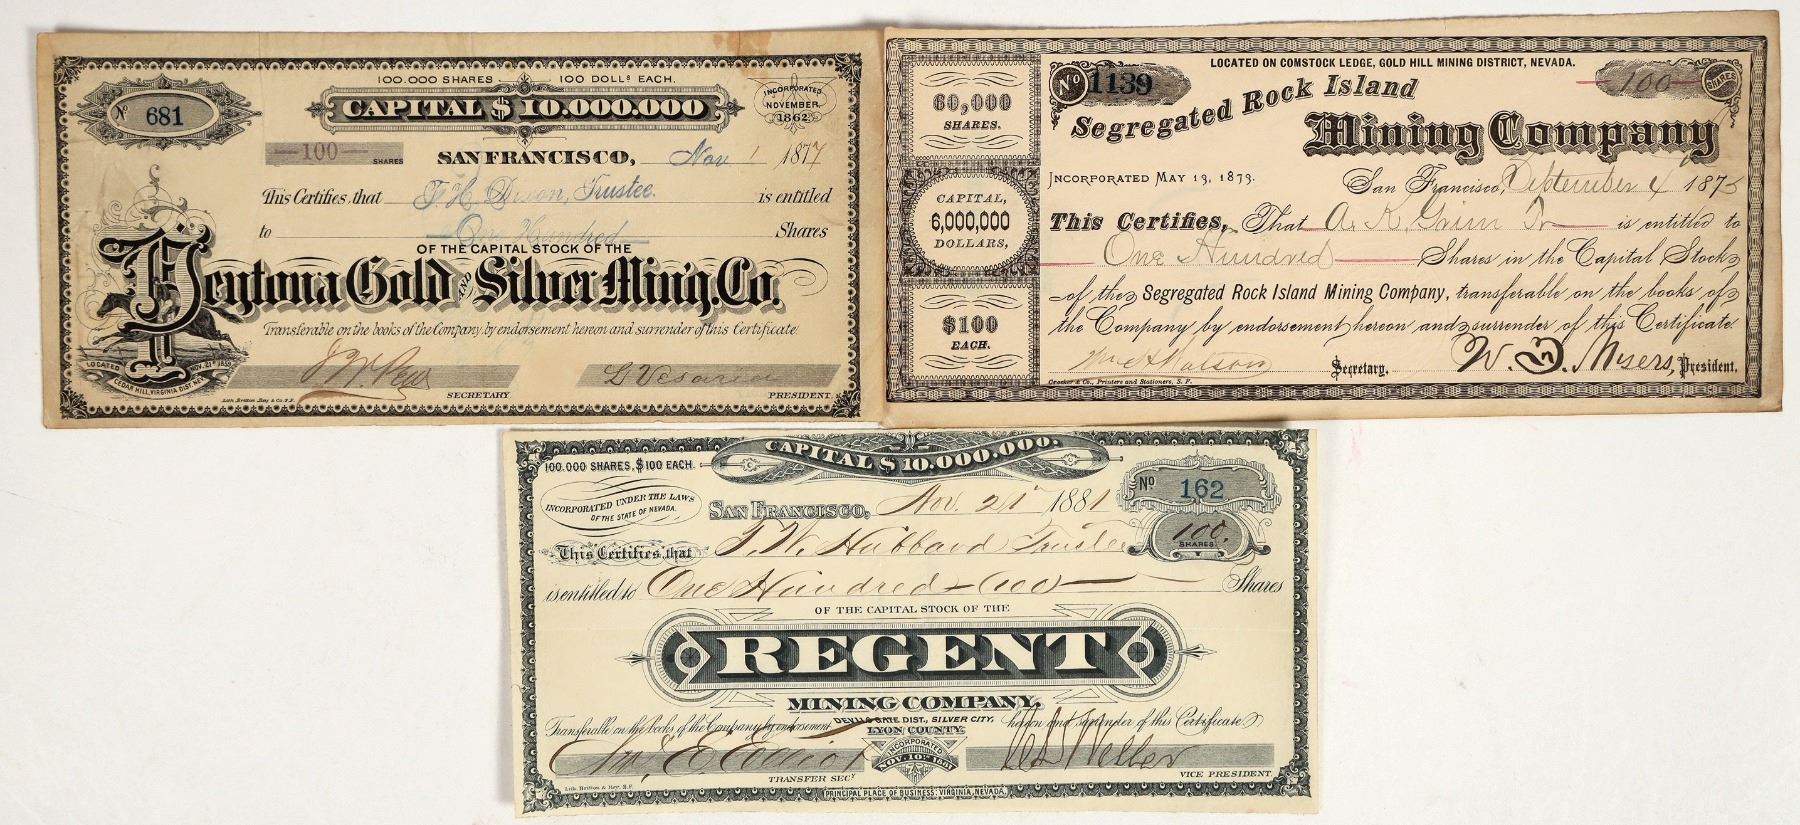 100.000 SHARES 100 DOLLS EACH.
CAPITAL $ 10.000.000
INCORPORATED
NOVEMBER.
1862
No 681
—100— SHARES
SAN FRANCISCO, Nov 1 1877
This Certifies that F. H. Dixon, Trustee. is entitled
to One Hundred Shares
OF THE CAPITAL STOCK OF THE
Peytona Gold AND Silver Ming. Co.
Transferable on the books of the Company by endorsement hereon and surrender of this Certificate
LOCATED NOV. 21ST 1859
CEDAR HILL, VIRGINIA DIST. NEV.
SECRETARY PRESIDENT
Lith. Britton Rey & Co. S.F.
LOCATED ON COMSTOCK LEDGE, GOLD HILL MINING DISTRICT, NEVADA.
No 1139
100 SHARES
Segregated Rock Island
Mining Company
60,000
SHARES.
CAPITAL,
6,000,000
DOLLARS,
$100
EACH.
INCORPORATED MAY 13, 1873.
San Francisco, September 4 1875
This Certifies, That A. K. Grim Jr is entitled to
One Hundred Shares in the Capital Stock
of the Segregated Rock Island Mining Company, transferable on the books of
the Company by endorsement hereon and surrender of this Certificate
Wm H Watson Secretary. W. Myers, President.
Crocker & Co., Printers and Stationers, S. F.
CAPITAL $ 10.000.000.
100.000 SHARES, $ 100 EACH.
INCORPORATED UNDER THE LAWS
OF THE STATE OF NEVADA.
SAN FRANCISCO, Nov. 21st 1881
No 162
100. SHARES
This Certifies that T. W. Hubbard Trustee
is entitled to One Hundred (100) Shares
OF THE CAPITAL STOCK OF THE
REGENT
MINING COMPANY,
DEVILS GATE DIST., SILVER CITY,
LYON COUNTY.
Transferable on the books of the Company by endorsement hereon and surrender of this Certificate
INCORPORATED
NOV. 10TH 1881
TRANSFER SECY VICE PRESIDENT
Lith. Britton & Rey. S.F.
PRINCIPAL PLACE OF BUSINESS: VIRGINIA, NEVADA.